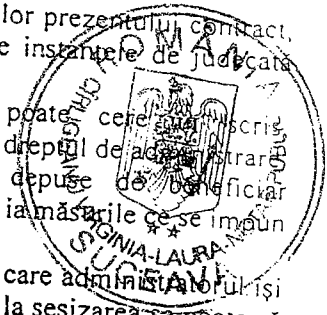 lor prezentului contract,
e instanţele de judecată
poate cere prin înscris
dreptul de administrare
depuse de beneficiar
ia măsurile ce se impun
care administratorul îşi
la sesizarea
ROMÂNIA
VIRGINIA-LAURA
SUCEAVA